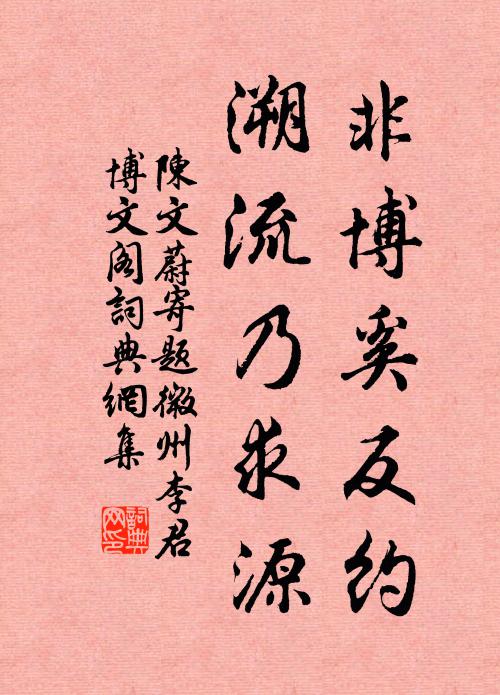 非博奚反約
溯流乃求源
陳文蔚寄題徽州李君
博文阁詞典網集
詞典网印